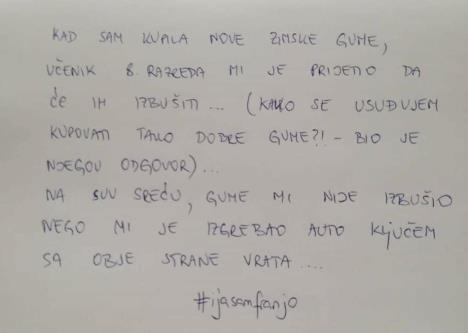 KAD SAM KUPILA NOVE ZIMSKE GUME,
UČENIK 8. RAZREDA MI JE PRIJETIO DA
ĆE IH IZBUŠITI... (KAKO SE USUĐUJEM
KUPOVATI TAKO DOBRE GUME?! - BIO JE
NJEGOV ODGOVOR)...
NA SVU SREĆU, GUME MI NIJE IZBUŠIO
NEGO MI JE IZGREBAO AUTO KLJUČEM
SA OBJE STRANE VRATA....
#ijasamfranjo